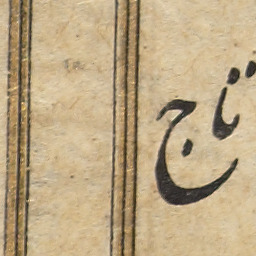 تاج